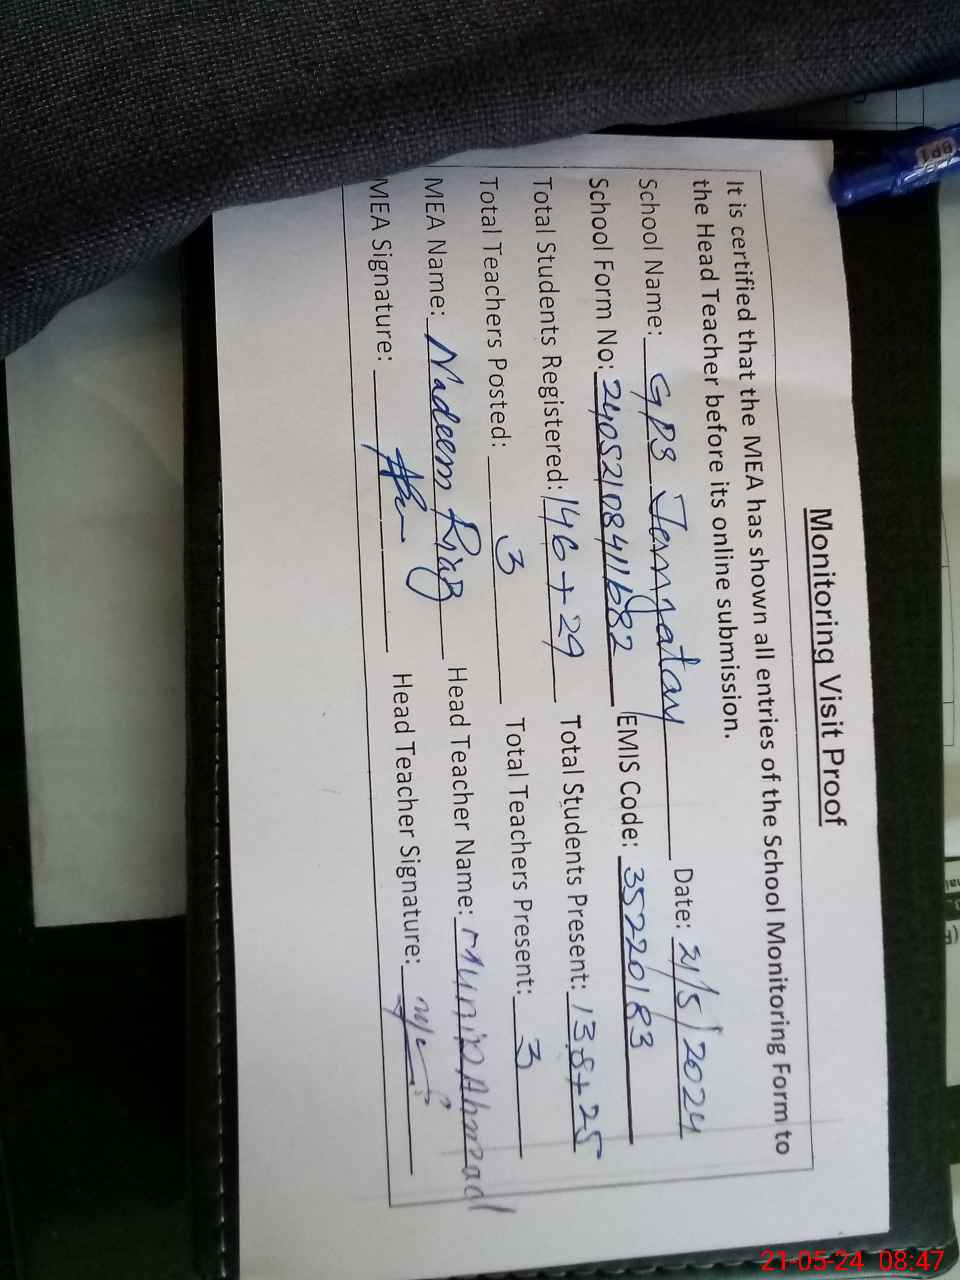 Monitoring Visit Proof
It is certified that the MEA has shown all entries of the School Monitoring Form to
the Head Teacher before its online submission.
School Name: GPS Jemjatay Date: 21/5/2024
School Form No: 24052108411682 EMIS Code: 35220183
Total Students Registered: 146 + 29 Total Students Present: 138 + 25
Total Teachers Posted: 3 Total Teachers Present: 3
MEA Name: Nadeem Riaz Head Teacher Name: Munir Ahmad
MEA Signature: Head Teacher Signature:
21-05-24 08:47